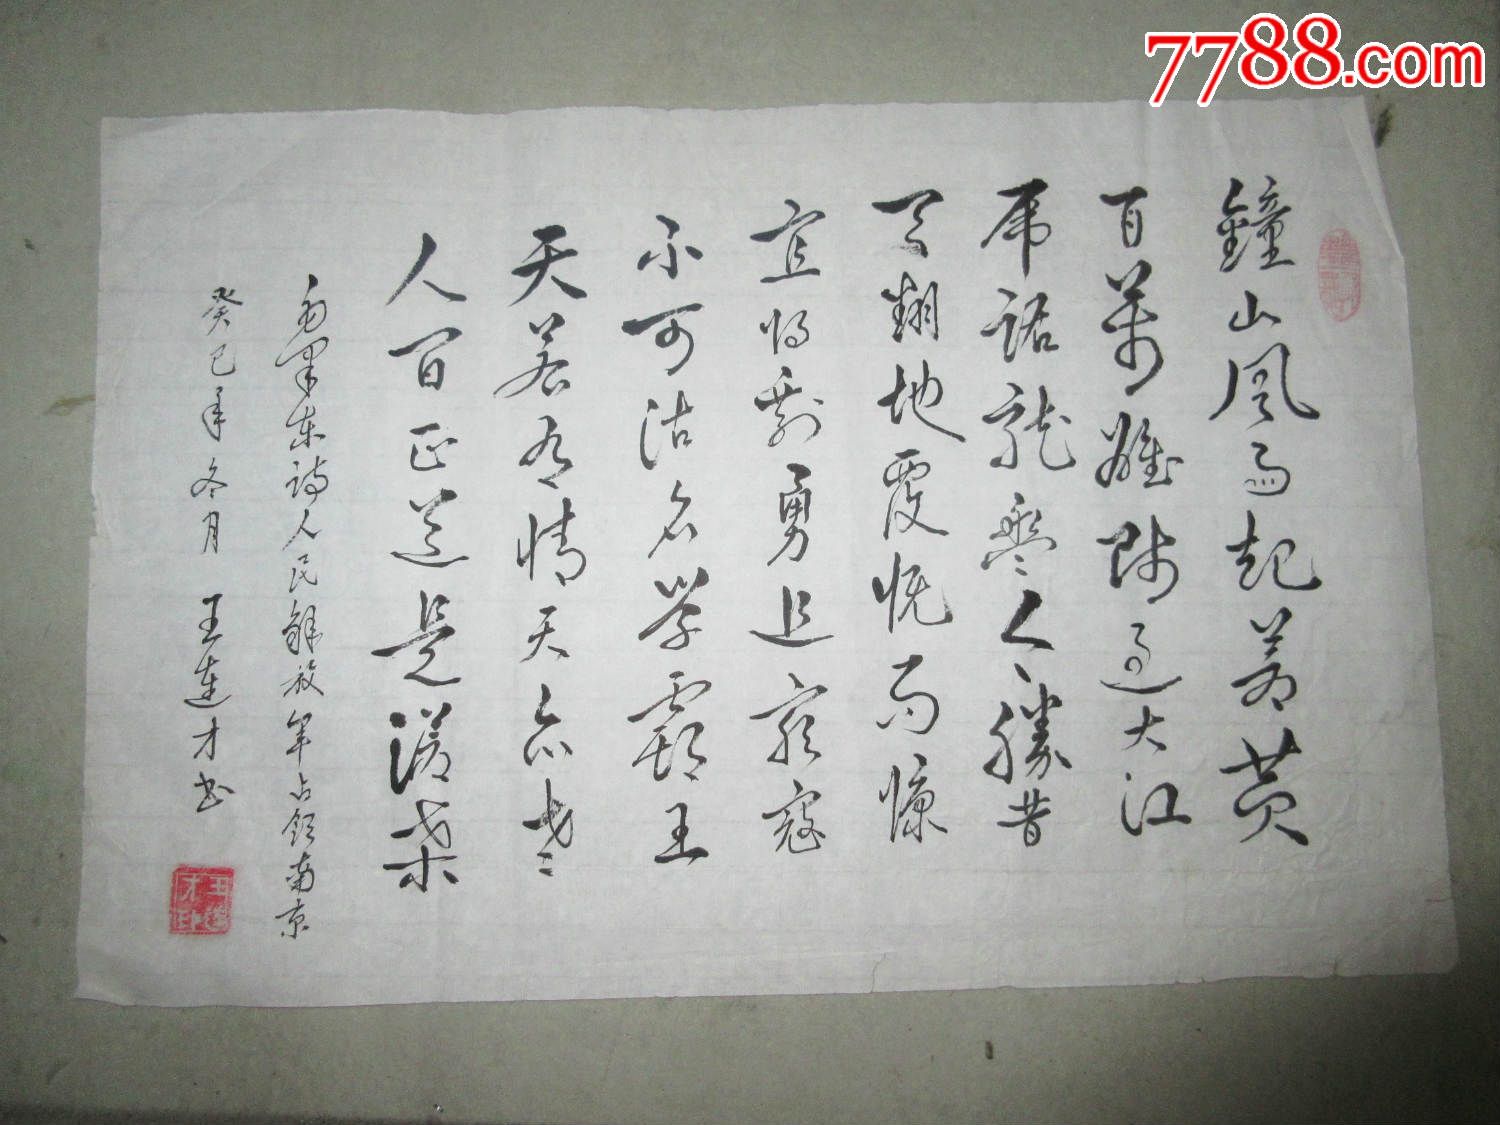 7788.com
鐘山風雨起蒼黄
百萬雄师過大江
虎踞龙盤今勝昔
天翻地覆慨而慷
宜將剩勇追窮寇
不可沽名学霸王
天若有情天亦老
人间正道是滄桑
毛澤东詩人民解放军占领南京
癸巳年冬月 王連才书
王連才印